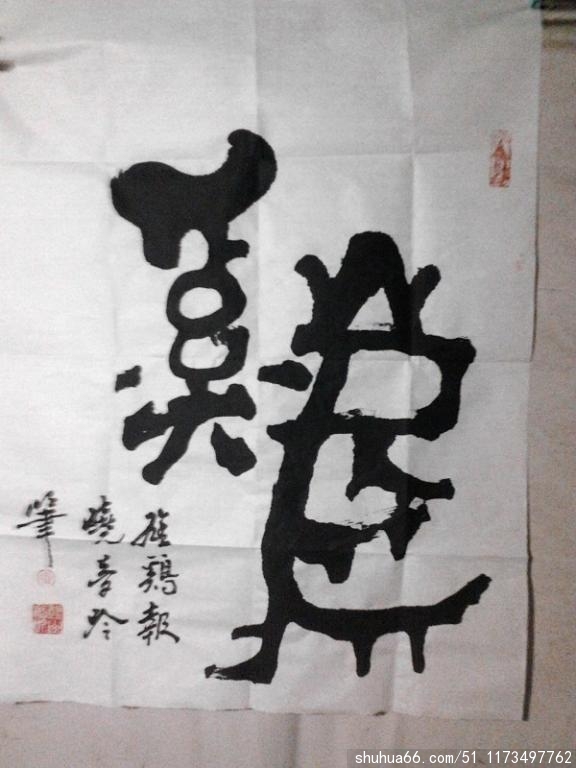 鷄
雄鷄報
曉
筆
shuhua66.com/51_1173497762